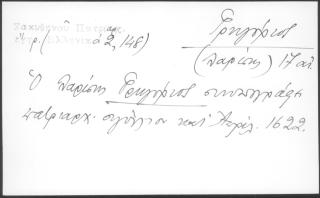 Ζακυθηνοῦ Πατριαρ.
ἔγγρ. (Ἑλληνικὰ 2, 148)
Γρηγόριος
(Λαρίσης) 17 αἰ.
Ὁ Λαρίσης Γρηγόριος συνυπογράφει
πατριαρχ. σιγίλλιον κατ' Ἀπρίλ. 1622.